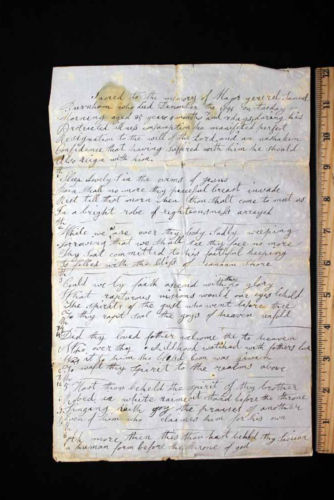 Sacred to the memory of Major general Daniel
Burnham who died December the on Tuesday
Morning aged 25 years 9 months and days, during his
Protracted illness he manifested perfect
Resignation to the will of the Lord, and an unshaken
Confidence that having suffered with him he should
Also reign with him.
Sleep lovely in the arms of Jesus
Pain shall no more thy peaceful breast invade
Rest till that morn when thou shalt come to meet us
In a bright robe of righteousness arrayed
While we are over thy body sadly weeping
Sorrowing that we shall see thy face no more
Thy committed to his faithful keeping
Is filled with the bliss of Canaan shore
Could we by faith ascend with thee to glory
What rapturous visions would our eyes behold
The spirits of the just who went before thee
To thy soul the joys of heaven unfold
Did thy loved father welcome thee to heaven
Who over thy childhood watched with fathers love
Was it to him the was given
To waft thy spirit to the realms above
Hast thou beheld the spirit of thy brother
Robed in white raiment stand before the throne
Singing with joy the praises of another
Even of him who claims him for his own
Ah more, then this thou hast beheld thy Saviour
In human form before the throne of god